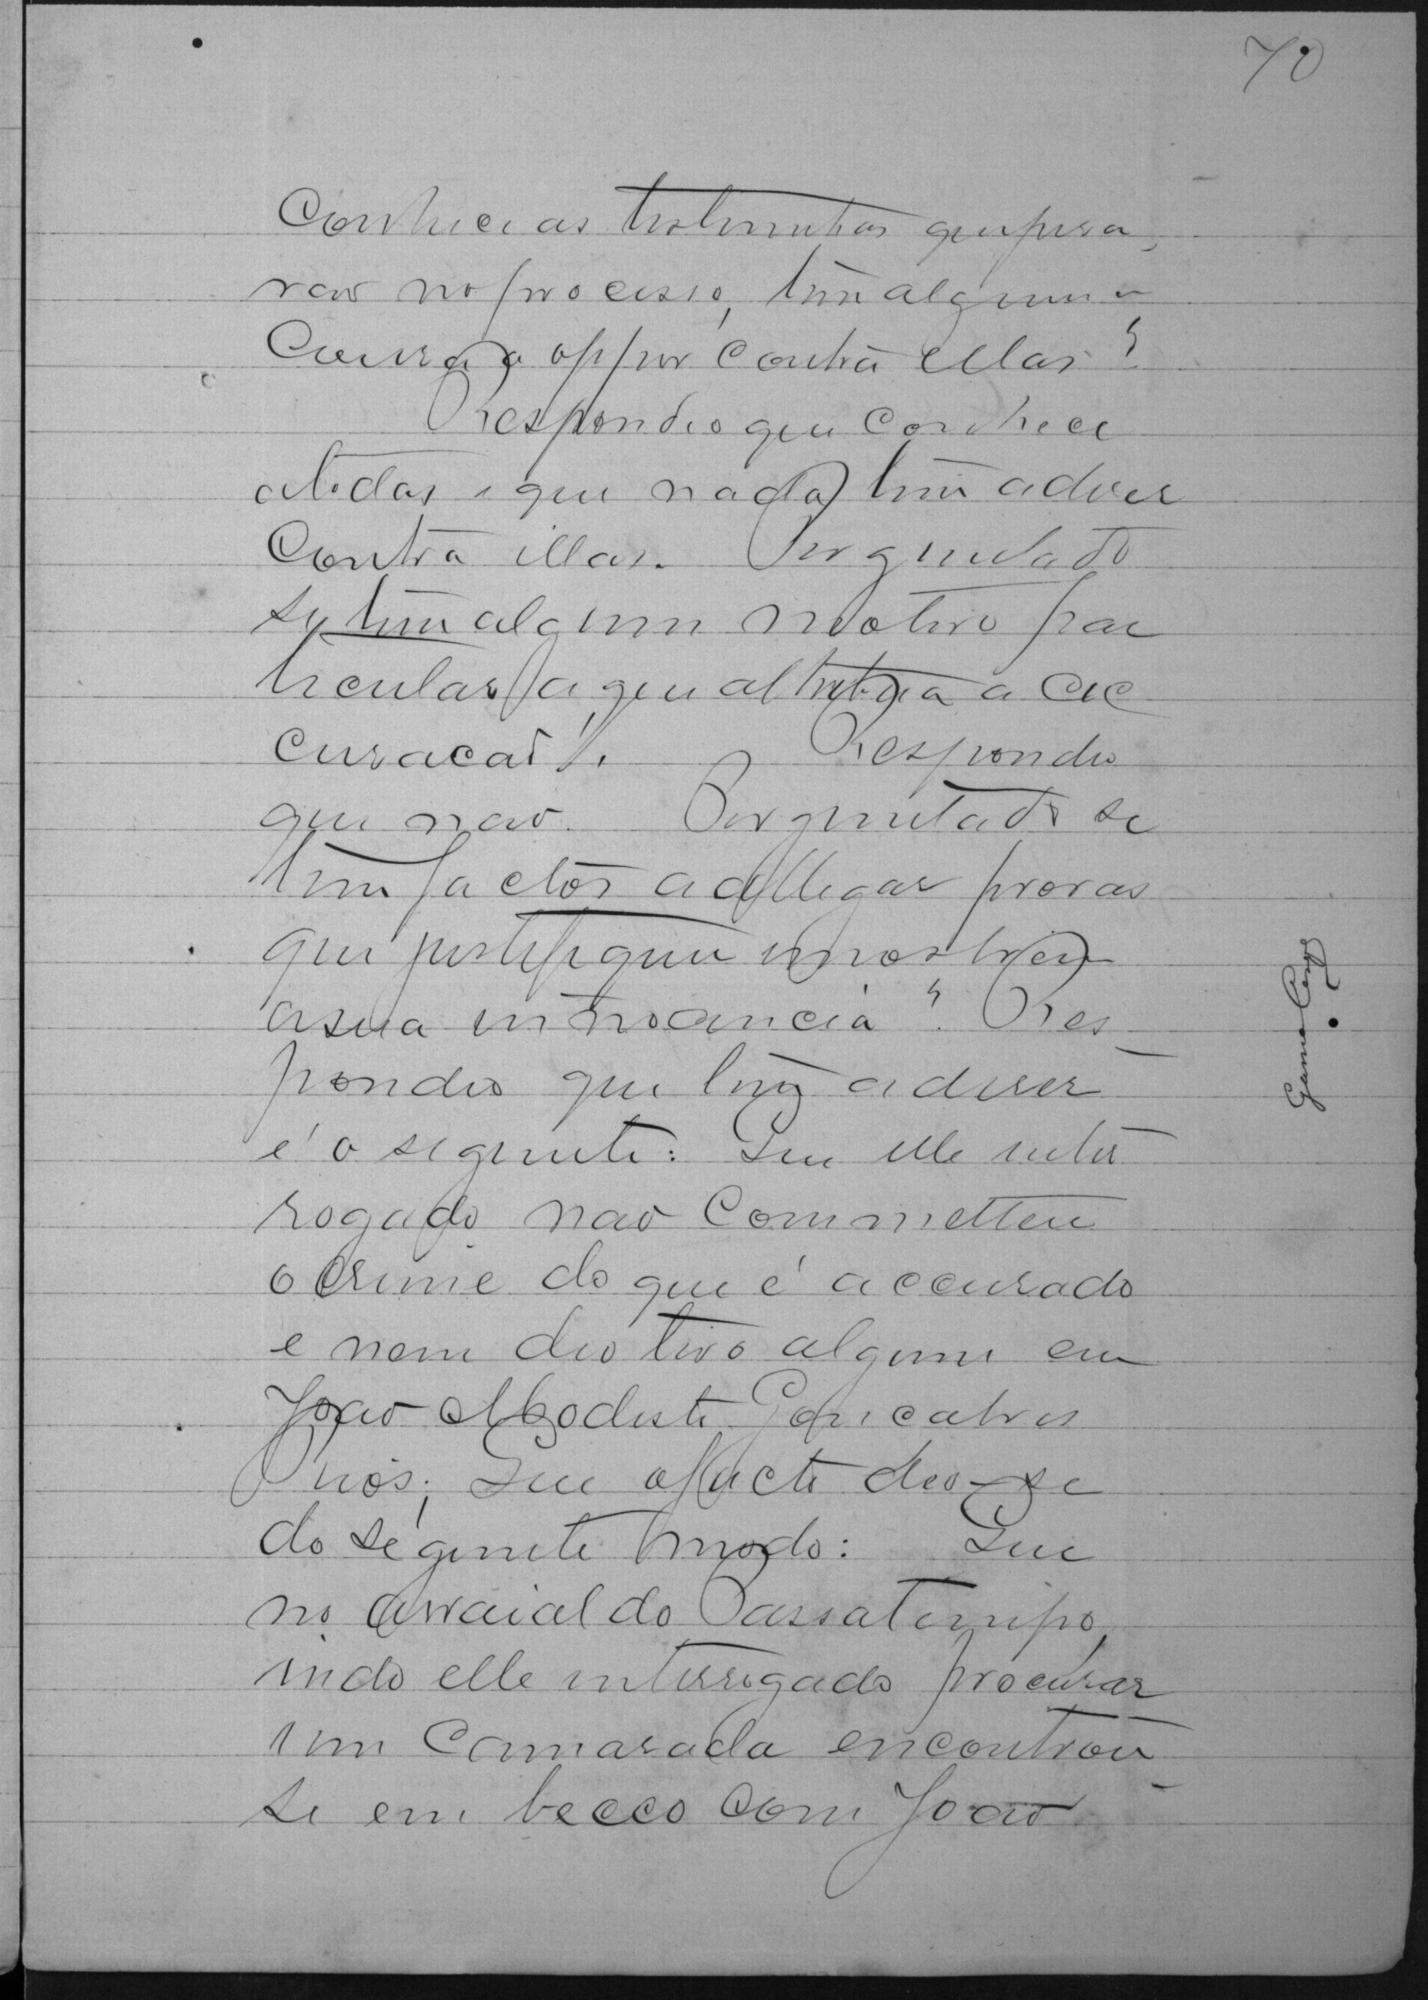 70
Conhece as testemunhas que jura-
rao no processo, tem alguma
Cousa a oppor contra ellas?
Respondeo que Conhece
atodas e que nada tem adiser
Contra ellas. Perguntado
se tem algum motivo par
ticular a que attribua a ac
cusacaõ? Respondeo
que nao. Perguntado se
tem factos a allegar provas
que justifiquem e mostrem
a sua innocencia? Res-
pondeo que tem a diser
é o seguinte: Que elle inter
rogado nao Commetteu
o crime do que é accusado
e nem deo tiro algum em
Joao Modesto Goncalves
que o facto deo-se
do seguinte modo: Que
no arraial do Passatempo,
indo elle interrogado procurar
um Camarada encontrou-
se em becco com Joao